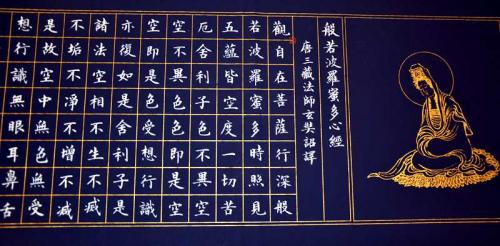 般若波羅蜜多心經
唐三藏法師玄奘詔譯
觀自在菩薩行深般
若波羅蜜多時照見
五蘊皆空度一切苦
厄舍利子色不異空
空不異色色即是空
空即是色受想行識
亦復如是舍利子是
諸法空相不生不滅
不垢不淨不增不減
是故空中無色無受
想行識無眼耳鼻舌